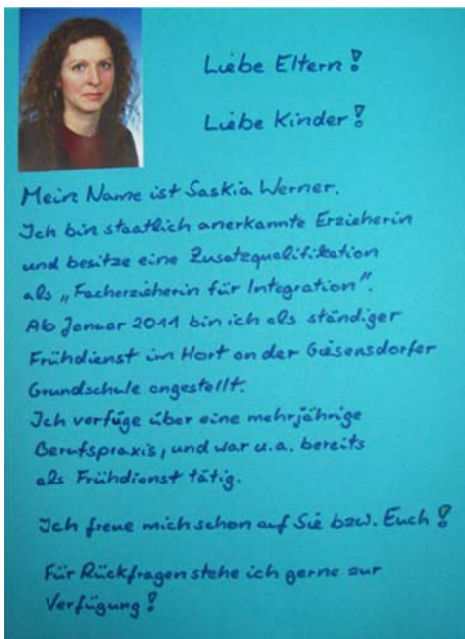 Liebe Eltern!
Liebe Kinder!
Mein Name ist Saskia Werner.
Ich bin staatlich anerkannte Erzieherin
und besitze eine Zusatzqualifikation
als „Facherzieherin für Integration".
Ab Januar 2011 bin ich als ständiger
Frühdienst im Hort an der Giesensdorfer
Grundschule angestellt.
Ich verfüge über eine mehrjährige
Berufspraxis, und war u.a. bereits
als Frühdienst tätig.
Ich freue mich schon auf Sie bzw. Euch!
Für Rückfragen stehe ich gerne zur
Verfügung!